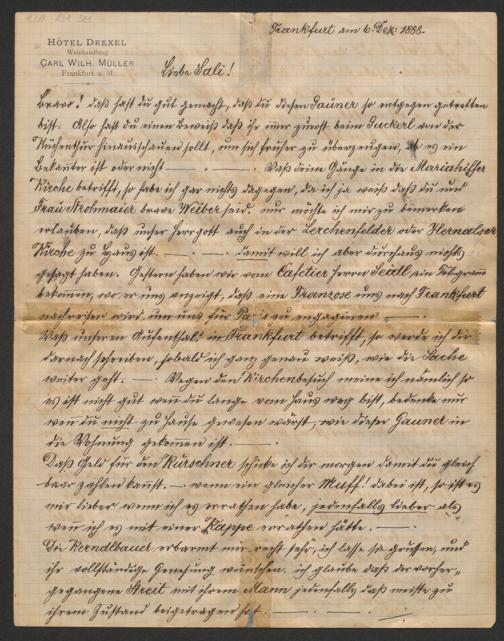 Frankfurt am 6. Dez: 1888.
HÔTEL DREXEL
Weinhandlung
CARL WILH. MÜLLER
Frankfurt a. M.
Liebe Sali!
Bravo! daß hast du gut gemacht, daß du diesen Gauner so entgegen getretten
bist. Also hast du einen Beweiß daß ihr immer zuerst beim Guckerl von der
Küchenthür hinausschauen sollt, um sich früher zu überzeugen, ob es ein
Bekanter ist oder nicht —.—.— Waß deine Gänge in die Mariahilfer
Kirche betrifft, so habe ich gar nichts dagegen, da ich ja weiß daß du und
Frau Strohmaier brave Weiber seid. nur möchte ich mir zu bemerken
erlauben, daß unser Herrgott auch in der Lerchenfelder oder Hernalser
Kirche zu Haus ist. —.—.— damit will ich aber durchaus nichts
gesagt haben. Gestern haben wir vom Cafetier Herrn Seidl ein Telegram
bekomen, wo er uns anzeigt, daß eine Franzose uns nach Frankfurt
nachreisen wird, um uns für Paris zu engagieren —.—
Waß unseren Aufenthalt in Frankfurt betrifft, so werde ich dir
darnach schreiben, sobald ich ganz genau weiß, wie die Sache
weiter geht. —.— Wegen den Kirchenbesuch meine ich nämlich so
es ist nicht gut wenn du lange vom Haus weg bist, bedenke nur
wenn du nicht zu Hause gewesen wärst, wie dieser Gauner in
die Wohnung gekomen ist. —.—
Daß Geld für den Kürschner schicke ich dir morgen damit du gleich
baar zahlen kanst. — wenn ein gleicher Muff dabei ist, so ist es
mir lieber wenn ich es errathen habe, jedenfalls lieber als
wenn ich es mit einer Kappe errathen hätte. —.—
Die Kerndlbauer erbarmt mir recht sehr, ich lasse sie grüssen, und
ihr vollständige Genesung wünschen. ich glaube daß der vorher=
gegangene Streit mit ihrem Mann jedenfalls daß meiste zu
ihrem Zustand beigetragen hat. —.—.—